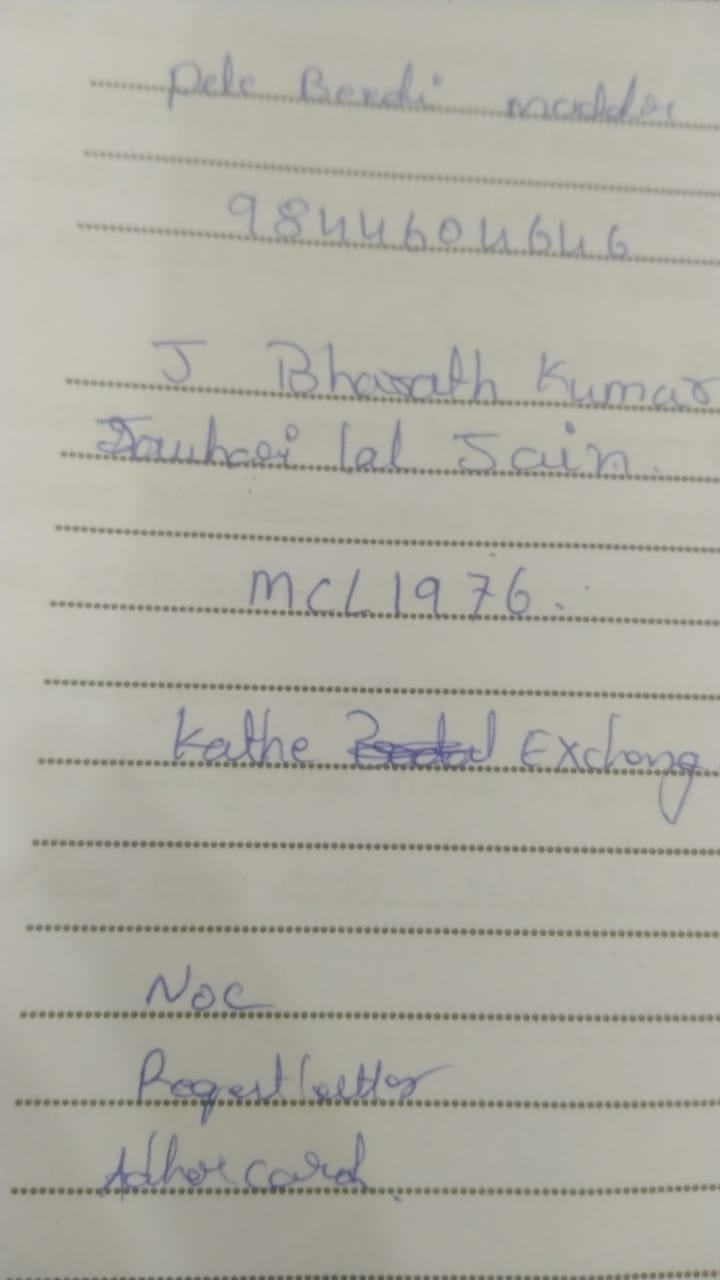 Pele Bendi maddor
9844604646
J Bharath Kumar
Jauhari lal Jain.
MCL1976.
Kathe Exchang
NOC
Reqest letter
Adhor card.